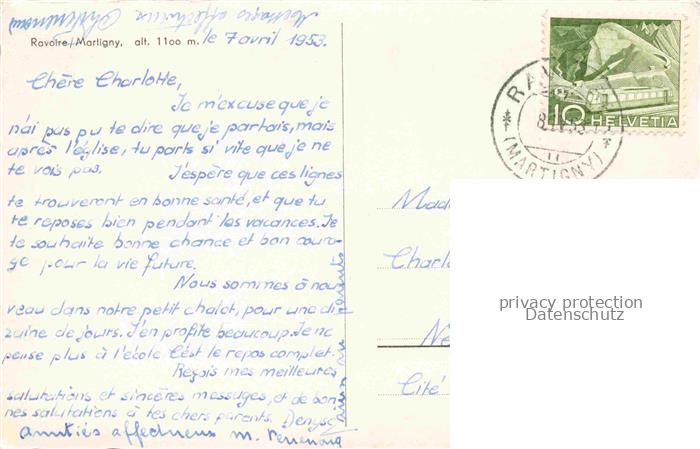 Messages affectueux
Ravoire/Martigny, alt. 1100 m. le 7 avril 1953.
Chère Charlotte,
Je m'excuse que je
n'ai pas pu te dire que je partais, mais
après l'église, tu parts si vite que je ne
te vois pas. J'espère que ces lignes
te trouveront en bonne santé, et que tu
te reposes bien pendant les vacances. Je
te souhaite bonne chance et bon coura-
ge pour la vie future.
Nous sommes à nou-
veau dans notre petit chalet, pour une di-
zaine de jours. J'en profite beaucoup. Je ne
pense plus à l'école. C'est le repos complet.
Reçois mes meilleures
salutations et sincères messages, et de bon-
nes salutations à tes chers parents. Denyse
Amitiés affectueus M.
10 HELVETIA
8.IV.53
(MARTIGNY)
Mad
Charlo
Ne
Cité
privacy protection
Datenschutz